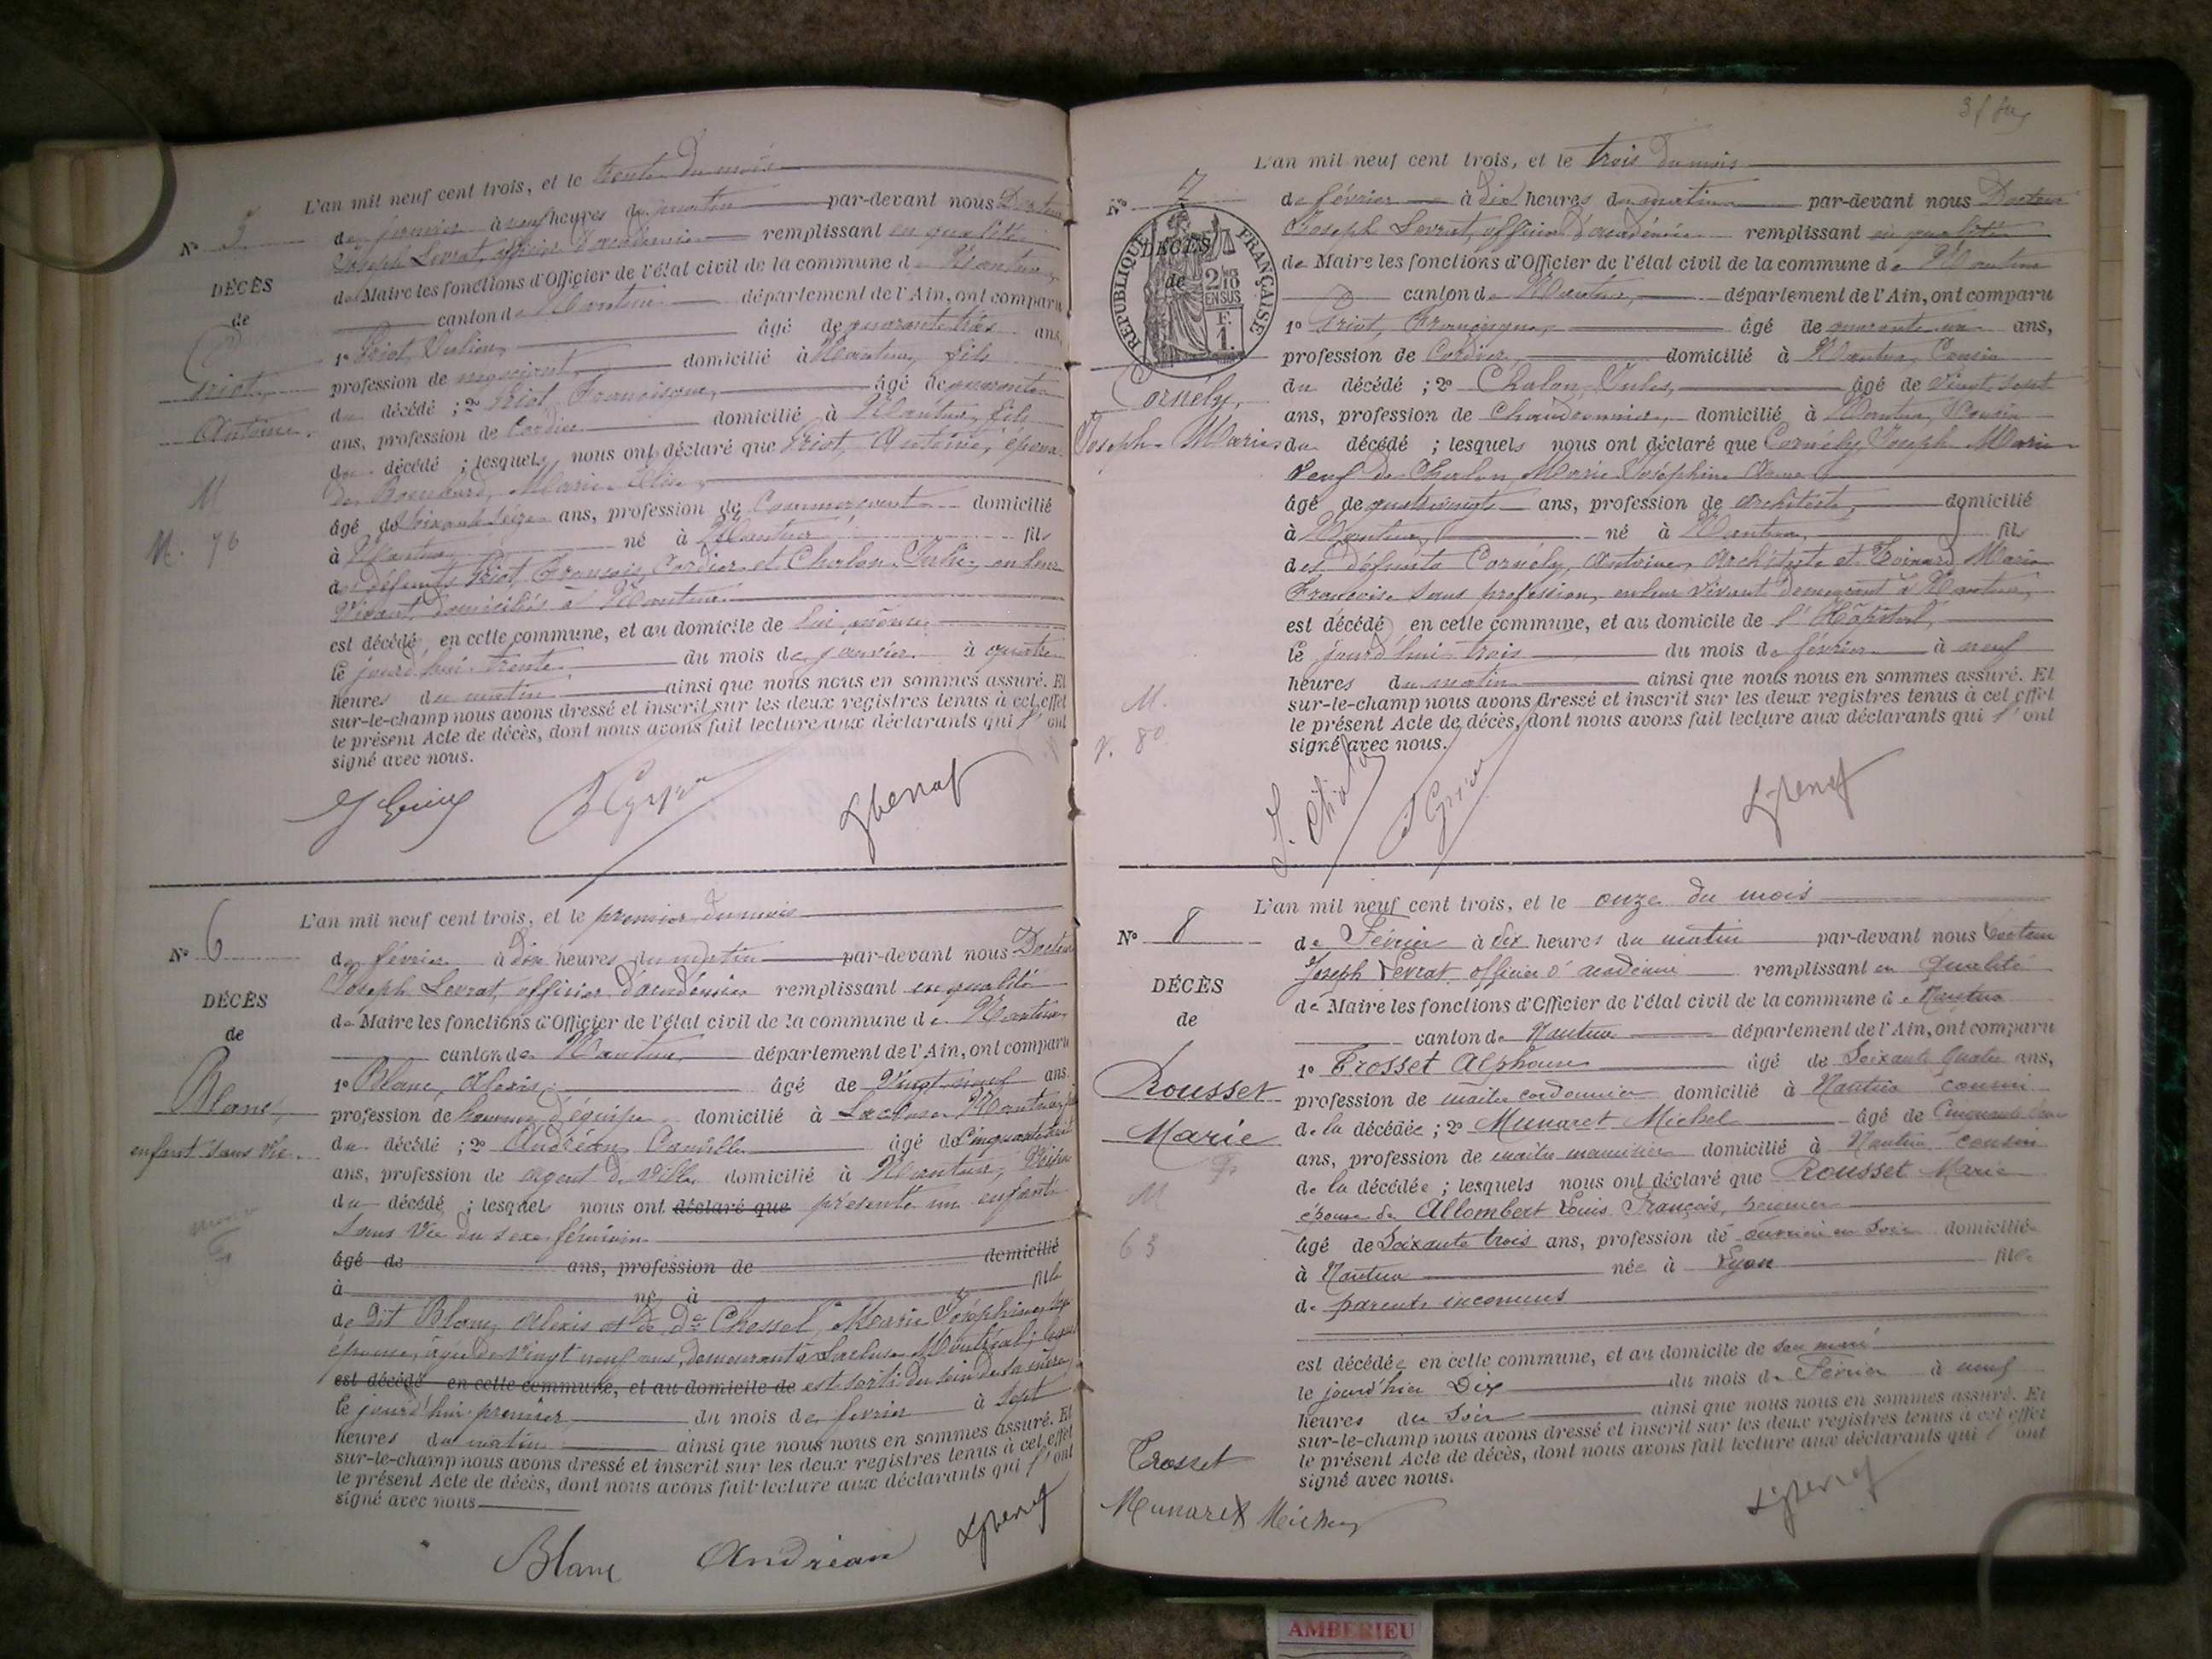 L'an mil neuf cent trois, et le trente du mois
N° 5
de janvier à neuf heures du matin par-devant nous Docteur
Joseph Levrat, officier d'académie remplissant en qualité
de Maire les fonctions d'Officier de l'état civil de la commune de Nantua,
DÉCÈS
de
Griot
Antoine.
M
M. 76
canton de Nantua département de l'Ain, ont comparu
1° Griot, Julien, âgé de quarante trois ans,
profession de négociant, domicilié à Nantua, fils
du décédé ; 2° Griot, Francisque, âgé de quarante
ans, profession de Cordier domicilié à Nantua, fils
du décédé ; lesquels nous ont déclaré que Griot, Antoine, époux
de Marie
âgé de soixante seize ans, profession de Commerçant domicilié
à Nantua né à Nantua fils
des défunts Griot, François, Cordier et Chalon, Julie, en leur
vivant domiciliés à Nantua
est décédé en cette commune, et au domicile de lui même
le jourd'hui trente du mois de janvier à quatre
heures du matin ainsi que nous nous en sommes assuré. Et
sur-le-champ nous avons dressé et inscrit sur les deux registres tenus à cet effet
le présent Acte de décès, dont nous avons fait lecture aux déclarants qui l'ont
signé avec nous.
L'an mil neuf cent trois, et le premier du mois
N° 6
de février à dix heures du matin par-devant nous Docteur
Joseph Levrat, officier d'académie remplissant en qualité
de Maire les fonctions d'Officier de l'état civil de la commune de Nantua
DÉCÈS
de
Blanc,
enfant sans vie.
canton de Nantua, département de l'Ain, ont comparu
1° Blanc, Alexis, âgé de vingt neuf ans
profession de homme d'équipe domicilié à Lacluse Montréal,
du décédé ; 2° Andréan, Camille âgé de cinquante huit
ans, profession de agent de ville domicilié à Nantua, Voisin
du décédé ; lesquels nous ont déclaré que présenté un enfant
sans vie du sexe féminin
âgé de ans, profession de domicilié
à né à fille
de dit Blanc Alexis et de De Chessel, Marie Joséphine, son
épouse, âgée de vingt neuf ans, demeurant à Lacluse Montréal;
est décédé en cette commune, et au domicile de est sorti du sein de sa mère
le jourd'hui premier du mois de février à sept
heures du matin ainsi que nous nous en sommes assuré. Et
sur-le-champ nous avons dressé et inscrit sur les deux registres tenus à cet effet
le présent Acte de décès, dont nous avons fait lecture aux déclarants qui l'ont
signé avec nous
Blanc Andréan
L'an mil neuf cent trois, et le trois du mois
N° 7
de février à dix heures du matin par-devant nous Docteur
Joseph Levrat, officier d'académie remplissant en qualité
de Maire les fonctions d'Officier de l'état civil de la commune de Nantua
RÉPUBLIQUE FRANÇAISE
2/10 EN SUS
F. 1.
DÉCÈS
de
Cornély,
Joseph Marie
M.
V. 80
canton de Nantua, département de l'Ain, ont comparu
1° Griot, Francisque, âgé de quarante un ans,
profession de Cordier, domicilié à Nantua, Cousin
du décédé ; 2° Chalon, Jules, âgé de vingt sept
ans, profession de Chaudronnier, domicilié à Nantua, Cousin
du décédé ; lesquels nous ont déclaré que Cornély, Joseph Marie
Veuf de Chalon, Marie Joséphine
âgé de quatre vingts ans, profession de Architecte, domicilié
à Nantua, né à Nantua, fils
des défunts Cornély, Antoine, Architecte et Marie
Françoise sans profession, en leur vivant demeurant à Nantua,
est décédé en cette commune, et au domicile de l'Hôpital,
le jourd'hui trois du mois de février à neuf
heures du matin ainsi que nous nous en sommes assuré. Et
sur-le-champ nous avons dressé et inscrit sur les deux registres tenus à cet effet
le présent Acte de décès, dont nous avons fait lecture aux déclarants qui l'ont
signé avec nous.
J. Chalon
L'an mil neuf cent trois, et le onze du mois
N° 8
de Février à dix heures du matin par-devant nous Docteur
Joseph Levrat officier d'académie remplissant en qualité
de Maire les fonctions d'Officier de l'état civil de la commune de Nantua
DÉCÈS
de
Rousset
Marie
M
63
canton de Nantua département de l'Ain, ont comparu
1° Trosset Alphonse âgé de Soixante quatre ans,
profession de maître cordonnier domicilié à Nantua cousin
de la décédée ; 2° Munaret Michel âgé de
ans, profession de maître menuisier domicilié à Nantua cousin
de la décédée ; lesquels nous ont déclaré que Rousset Marie
épouse de Allombert Louis François,
âgé de Soixante trois ans, profession de ouvrière en soie domiciliée
à Nantua née à Lyon fille
de parents inconnus
est décédée en cette commune, et au domicile de son mari
le jourd'hier Dix du mois de Février à neuf
heures du Soir ainsi que nous nous en sommes assuré. Et
sur-le-champ nous avons dressé et inscrit sur les deux registres tenus à cet effet
le présent Acte de décès, dont nous avons fait lecture aux déclarants qui l'ont
signé avec nous.
Trosset
Munaret Michel
AMBERIEU